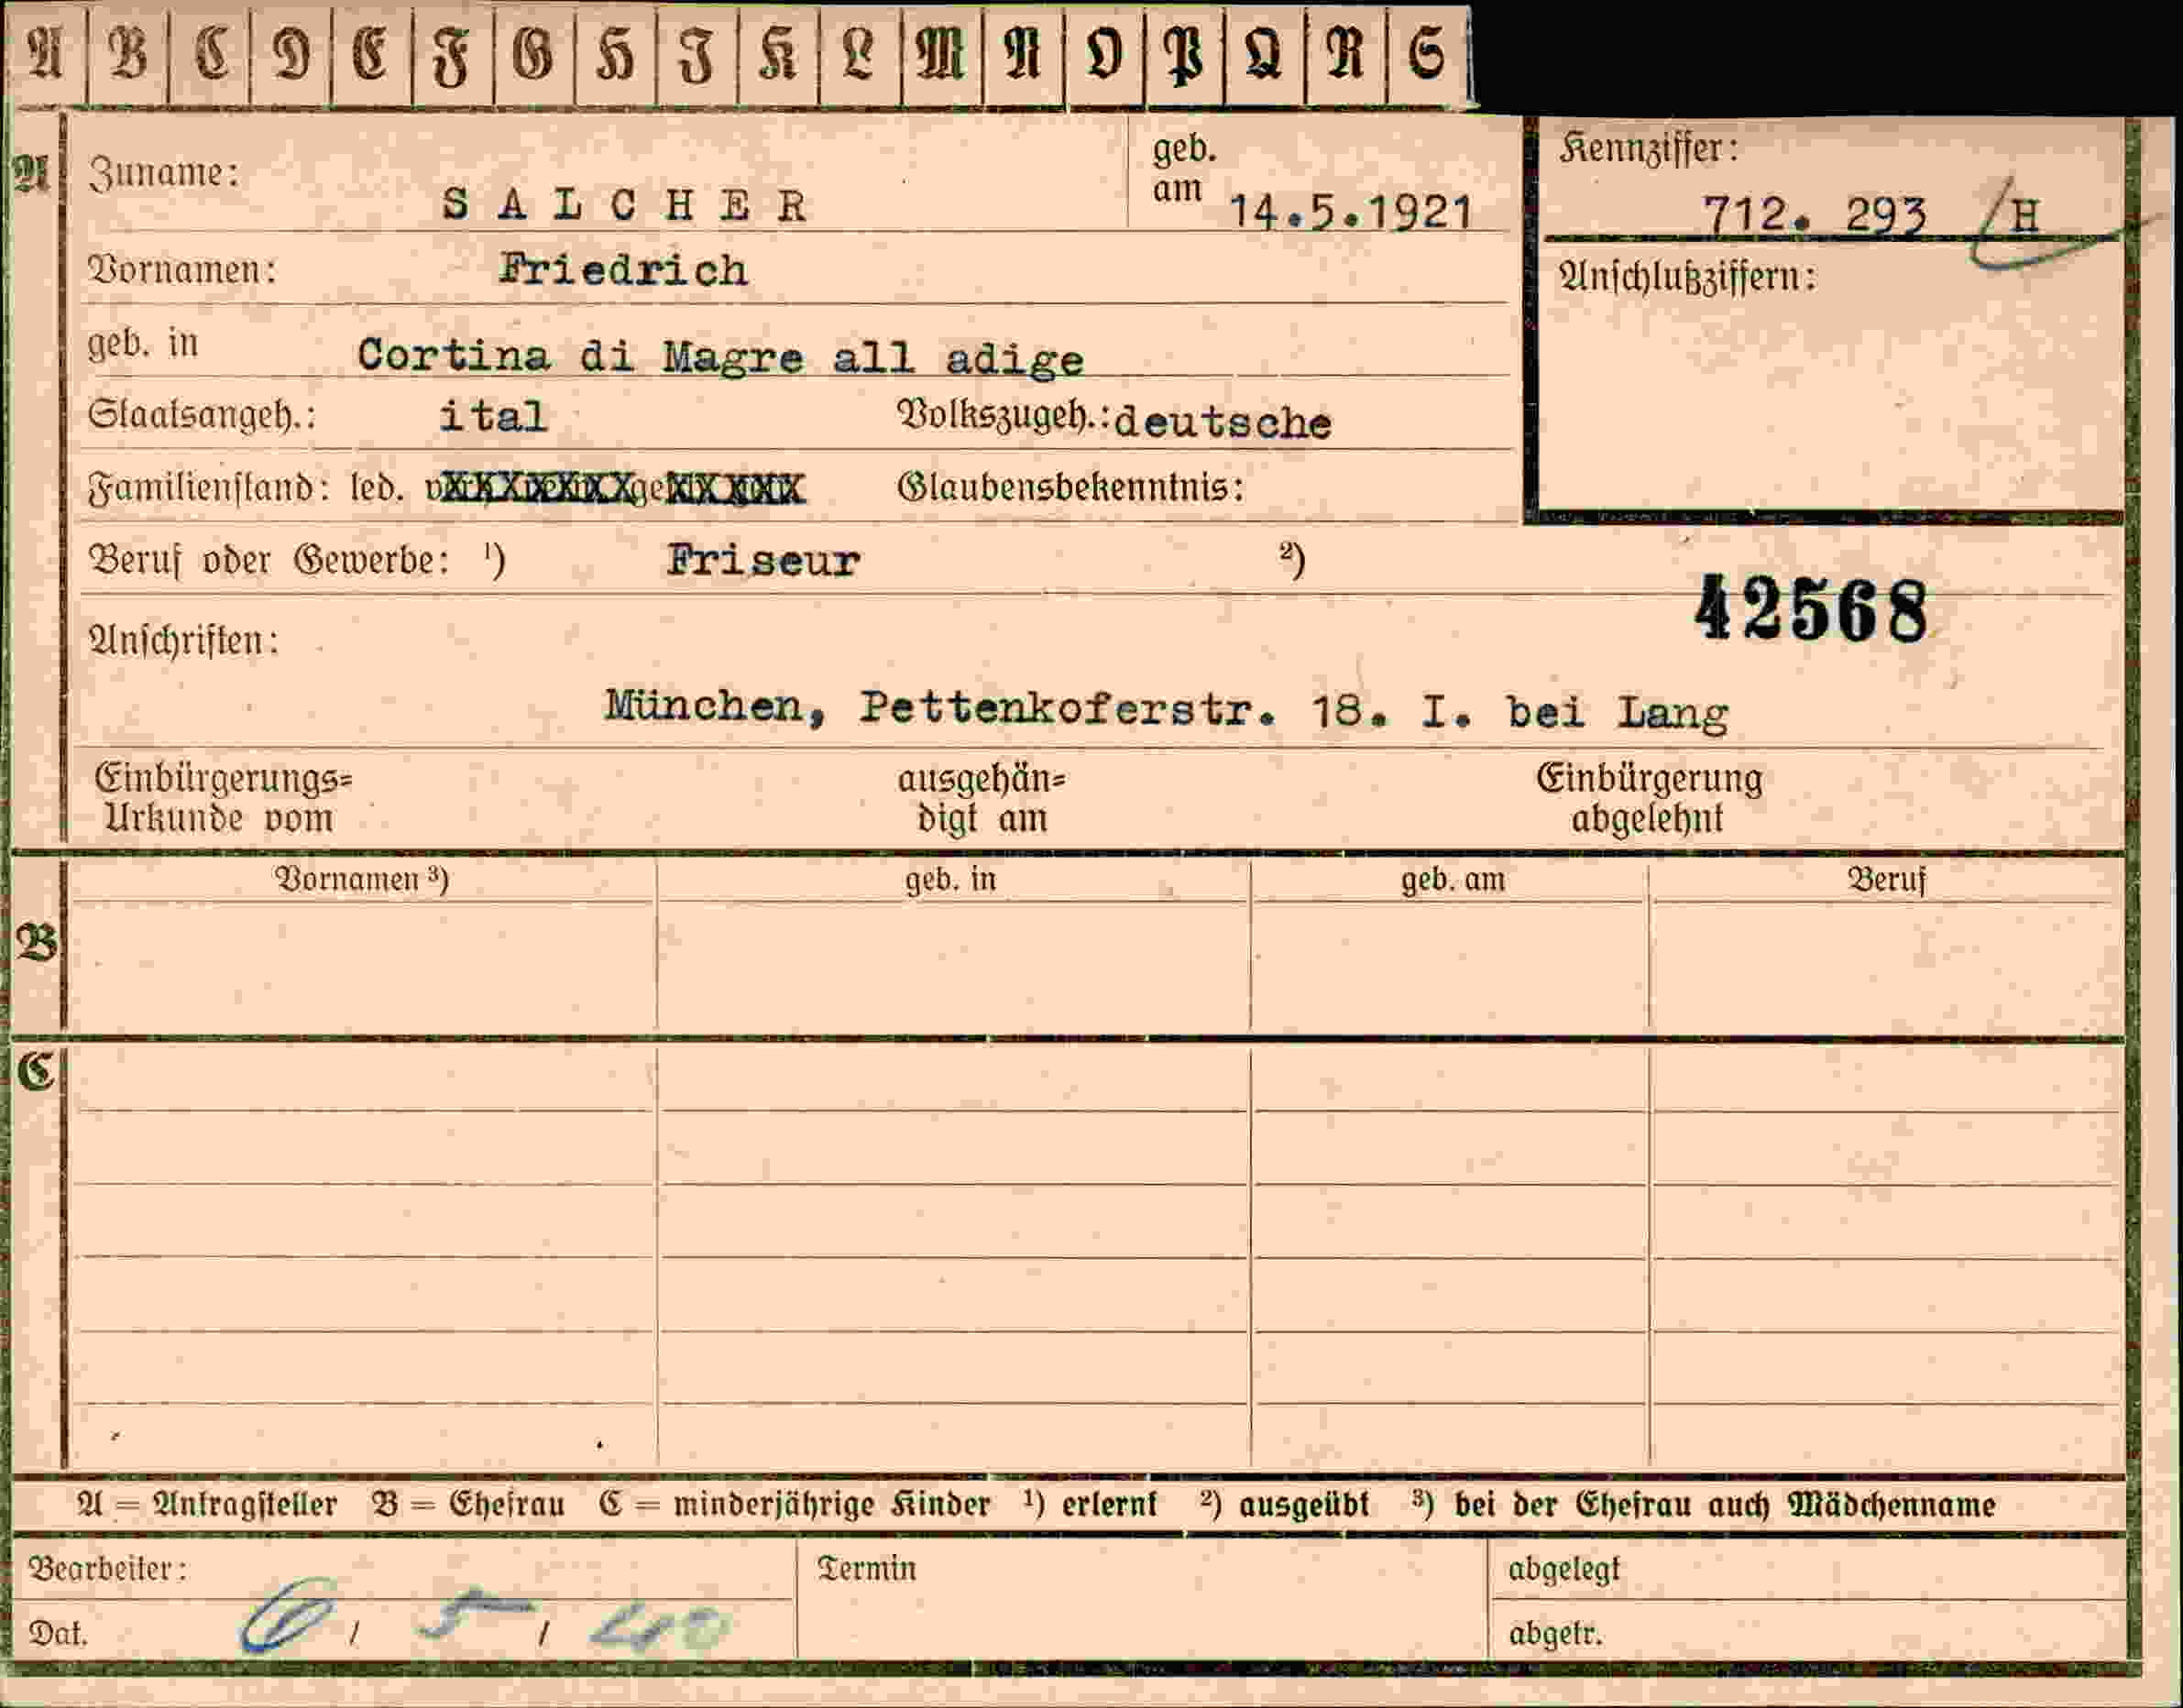 A B C D E F G H I K L M N O P Q R S
A
Zuname: SALCHER
geb. am 14.5.1921
Kennziffer: 712. 293 /H
Vornamen: Friedrich
Anschlußziffern:
geb. in Cortina di Magre all adige
Staatsangeh.: ital Volkszugeh.: deutsche
Familienstand: led. Glaubensbekenntnis:
Beruf oder Gewerbe: ¹) Friseur ²)
42568
Anschriften:
München, Pettenkoferstr. 18. I. bei Lang
Einbürgerungs= ausgehän= Einbürgerung
Urkunde vom digt am abgelehnt
Vornamen ³) geb. in geb. am Beruf
B
C
A = Antragsteller B = Ehefrau C = minderjährige Kinder ¹) erlernt ²) ausgeübt ³) bei der Ehefrau auch Mädchenname
Bearbeiter: Termin abgelegt
Dat. 6 / 5 / 40 abgetr.